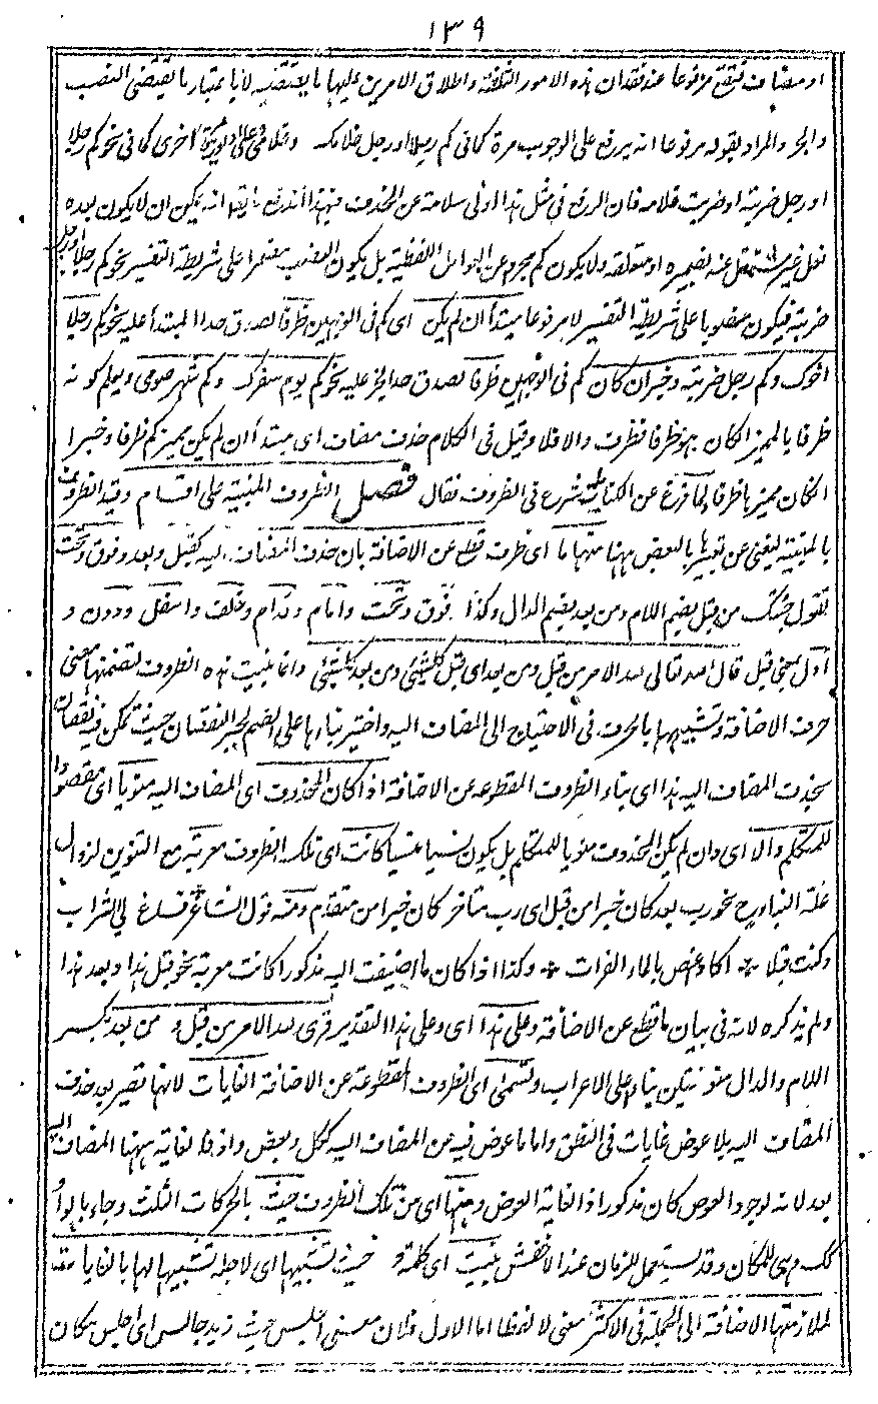 ١٣٩
او مضاف فيقع مرفوعا عند فقدان هذه الامور الثلثة واطلاق الامرين عليها ما يقتضيه لانا باعتبار ما يقتضى النصب
والجر والمراد بقوله مرفوعا انه يرفع على الوجوب مرة كما فى كم رجلا اورجل غلامك اخرى كما فى نحو كم رجلا
اورجل ضربته اوضربت غلامه فان الرفع فى مثل هذا اولى سلامة عن الحذف فبهذا اندفع ما يقوا انه يمكن ان لا يكون بعده
فعل غير مشتغل عنه بضميره او متعلقه ولا يكون كم مجردا عن العوامل اللفظية بل يكون العامل مضمرا على شريطة التفسير نحو كم رجلا اورجل
ضربته فيكون منصوبا على شريطة التفسير لا مرفوعا مبتدأ ان لم يكن اى كم فى الوجهين ظرفا لصدق حد المبتدأ عليه نحو كم رجلا
اخوك وكم رجل ضربته وخبر ان كان كم فى الوجهين ظرفا لصدق حد الخبر عليه نحو كم يوم سفرك وكم شهر صومى ويعلم كونه
ظرفا بالمميز ان كان هو ظرفا فظرف والا فلا وقيل فى الكلام حذف مضاف اى مبتدأ ان لم يكن مميز كم ظرفا وخبرا
ان كان مميزها ظرفا لما فرغ عن الكنايات شرع فى الظروف فقال فصل الظروف المبنية على اقسام وقيد الظروف
بالمبنية ليغنى عن تعبيرها بالبعض ههنا منها ما اى ظرف قطع عن الاضافة بان حذف المضاف اليه كقبل وبعد وفوق وتحت
تقول جئتك من قبل بضم اللام ومن بعد بضم الدال وكذا فوق وتحت وامام وقدام وخلف واسفل ودون و
اول بمعنى قبل قال الله تعالى لله الامر من قبل ومن بعد اى قبل كل شىء ومن بعد كل شىء وانما بنيت هذه الظروف لتضمنها معنى
حرف الاضافة وتشبيهها بالحرف فى الاحتياج الى المضاف اليه واختير بناءها على الضم لجبر النقصان حيث تمكن فيه نقصان
بحذف المضاف اليه هذا اى بناء الظروف المقطوعة عن الاضافة اذا كان المحذوف اى المضاف اليه منويا اى مقصودا
للمتكلم والا اى وان لم يكن المحذوف منويا للمتكلم بل يكون نسيا منسيا كانت اى تلك الظروف معربة مع التنوين لزوال
علة البناء نحو رب بعد كان خيرا من قبل اى رب متأخر كان خيرا من متقدم ومنه قول الشاعر فساغ لى الشراب
وكنت قبلا * اكاد اغص بالماء الفرات * وكذا اذا كان ما اضيفت اليه مذكورا كانت معربة نحو قبل هذا وبعد هذا
ولم يذكره لانه فى بيان ما قطع عن الاضافة وعلى هذا اى وعلى هذا التقدير قرئ لله الامر من قبل و من بعد بكسر
اللام والدال منونتين بناء على الاعراب وتسمى اى الظروف المقطوعة عن الاضافة الغايات لانها تصير بعد حذف
المضاف اليه بلا عوض غايات فى النطق واما ما عوض فيه عن المضاف اليه ككل وبعض واذ فلا لغاية ههنا المضاف اليه
بعد لانه لوجود العوض كان مذكورا اذ الغاية العوض ومنها اى من تلك الظروف حيث بالحركات الثلث وجاء بالواو
وهى للمكان وقد يستعمل للزمان عند الاخفش بنيت اى كلمة حيث تشبيها اى لاجل تشبيهها لها بالغايات
لملازمتها الاضافة الى الجملة فى الاكثر معنى لا لفظا اما الاول فلان معنى اجلس حيث زيد جالس اى اجلس مكان